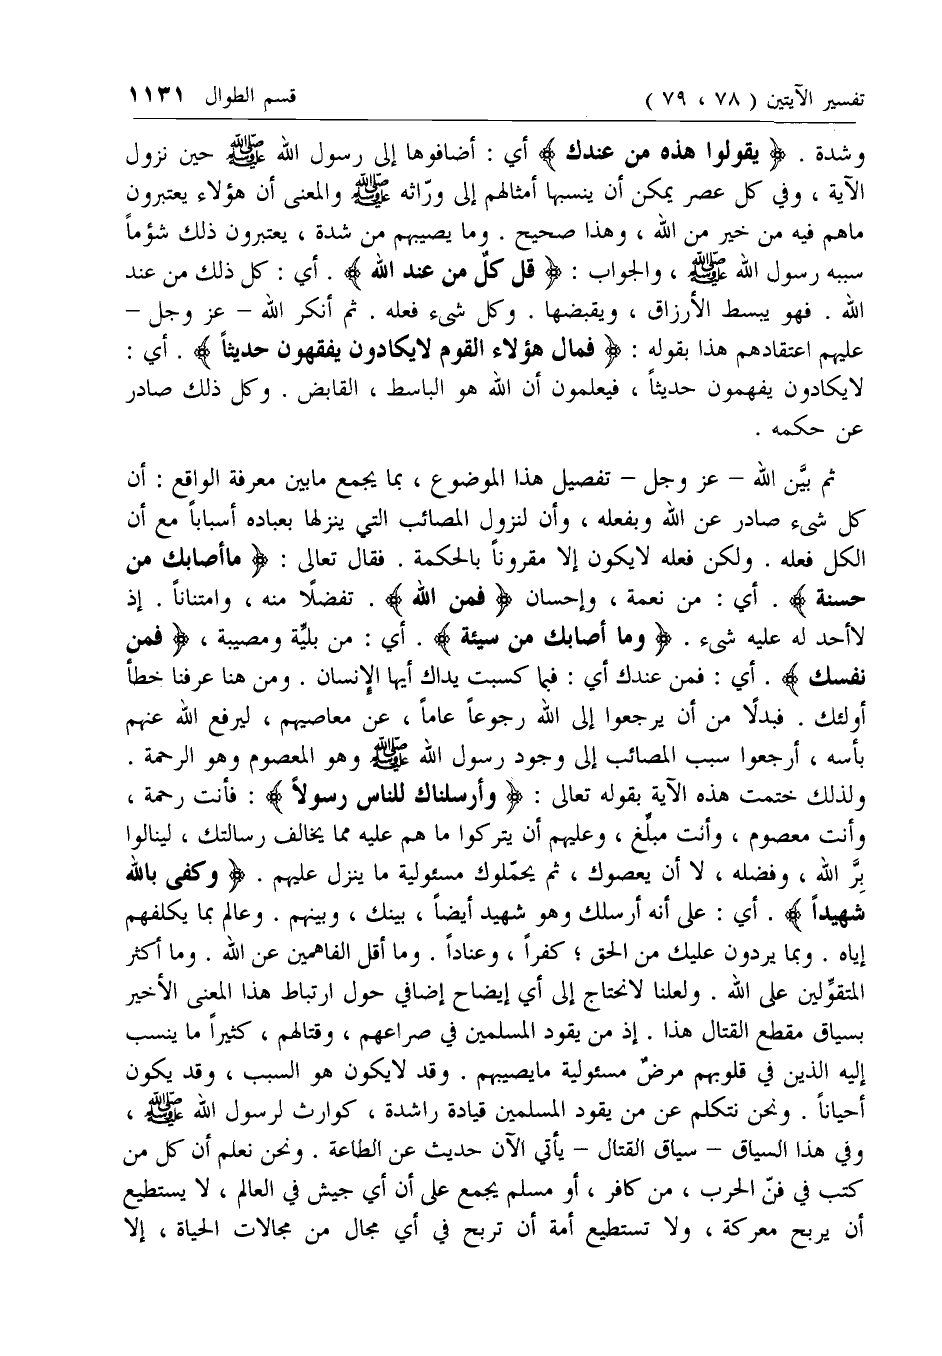 تفسير الآيتين ( ٧٨ ، ٧٩ ) قسم الطوال ١١٣١
وشدة . ﴿ يقولوا هذه من عندك ﴾ أي : أضافوها إلى رسول الله ﷺ حين نزول
الآية ، وفي كل عصر يمكن أن ينسبها أمثالهم إلى ورّاثه ﷺ والمعنى أن هؤلاء يعتبرون
ماهم فيه من خير من الله ، وهذا صحيح . وما يصيبهم من شدة ، يعتبرون ذلك شؤماً
سببه رسول الله ﷺ ، والجواب : ﴿ قل كلٌ من عند الله ﴾ . أي : كل ذلك من عند
الله . فهو يبسط الأرزاق ، ويقبضها . وكل شىء فعله . ثم أنكر الله – عز وجل –
عليهم اعتقادهم هذا بقوله : ﴿ فمال هؤلاء القوم لايكادون يفقهون حديثاً ﴾ . أي :
لايكادون يفهمون حديثاً ، فيعلمون أن الله هو الباسط ، القابض . وكل ذلك صادر
عن حكمه .
ثم بيَّن الله – عز وجل – تفصيل هذا الموضوع ، بما يجمع مابين معرفة الواقع : أن
كل شىء صادر عن الله وبفعله ، وأن لنزول المصائب التي ينزلها بعباده أسباباً مع أن
الكل فعله . ولكن فعله لايكون إلا مقروناً بالحكمة . فقال تعالى : ﴿ ماأصابك من
حسنة ﴾ . أي : من نعمة ، وإحسان ﴿ فمن الله ﴾ . تفضلًا منه ، وامتناناً . إذ
لاأحد له عليه شىء . ﴿ وما أصابك من سيئة ﴾ . أي : من بليَّة ومصيبة ، ﴿ فمن
نفسك ﴾ . أي : فمن عندك أي : فبما كسبت يداك أيها الإنسان . ومن هنا عرفنا خطأ
أولئك . فبدلًا من أن يرجعوا إلى الله رجوعاً عاماً ، عن معاصيهم ، ليرفع الله عنهم
بأسه ، أرجعوا سبب المصائب إلى وجود رسول الله ﷺ وهو المعصوم وهو الرحمة .
ولذلك ختمت هذه الآية بقوله تعالى : ﴿ وأرسلناك للناس رسولاً ﴾ : فأنت رحمة ،
وأنت معصوم ، وأنت مبلِّغ ، وعليهم أن يتركوا ما هم عليه مما يخالف رسالتك ، لينالوا
بِرَّ الله ، وفضله ، لا أن يعصوك ، ثم يحمّلوك مسئولية ما ينزل عليهم . ﴿ وكفى بالله
شهيداً ﴾ . أي : على أنه أرسلك وهو شهيد أيضاً ، بينك ، وبينهم . وعالم بما يكلفهم
إياه . وبما يردون عليك من الحق ؛ كفراً ، وعناداً . وما أقل الفاهمين عن الله . وما أكثر
المتقوِّلين على الله . ولعلنا لانحتاج إلى أي إيضاح إضافي حول ارتباط هذا المعنى الأخير
بسياق مقطع القتال هذا . إذ من يقود المسلمين في صراعهم ، وقتالهم ، كثيراً ما ينسب
إليه الذين في قلوبهم مرضٌ مسئولية مايصيبهم . وقد لايكون هو السبب ، وقد يكون
أحياناً . ونحن نتكلم عن من يقود المسلمين قيادة راشدة ، كوارث لرسول الله ﷺ ،
وفي هذا السياق – سياق القتال – يأتي الآن حديث عن الطاعة . ونحن نعلم أن كل من
كتب في فنّ الحرب ، من كافر ، أو مسلم يجمع على أن أي جيش في العالم ، لا يستطيع
أن يربح معركة ، ولا تستطيع أمة أن تربح في أي مجال من مجالات الحياة ، إلا